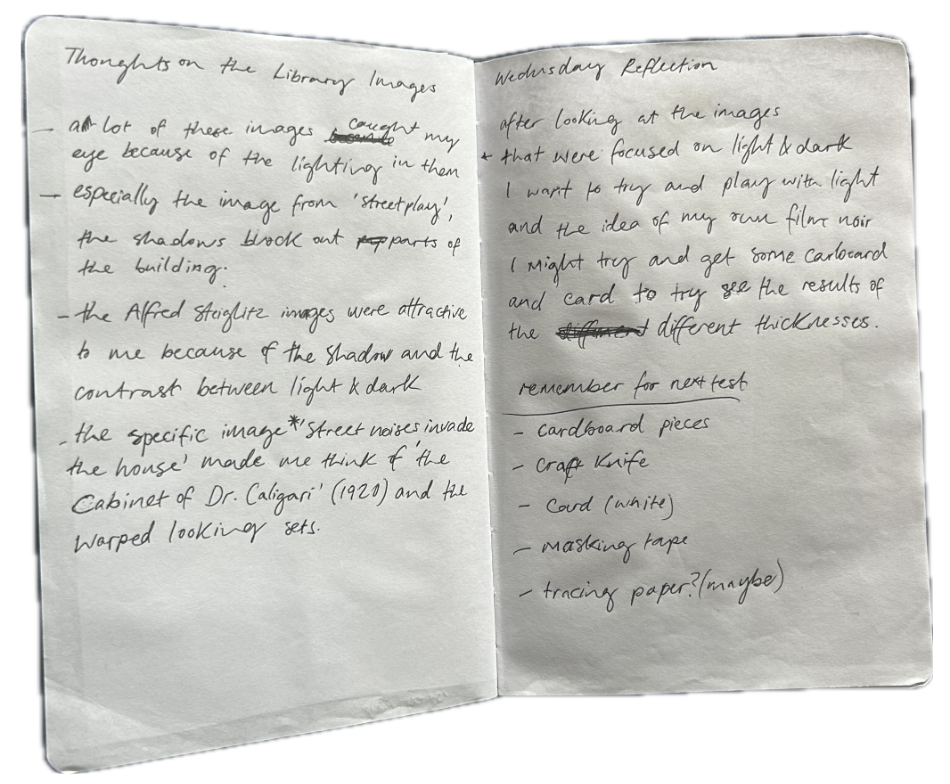 Thoughts on the Library Images
- a lot of these images caught my
eye because of the lighting in them
- especially the image from 'street play',
the shadows block out parts of
the building.
- the Alfred Steiglitz images were attractive
to me because of the shadow and the
contrast between light & dark
- the specific image * 'street noises invade
the house' made me think of 'the
Cabinet of Dr. Caligari' (1920) and the
warped looking sets.
Wednesday Reflection
after looking at the images
that were focused on light & dark
I want to try and play with light
and the idea of my own film noir
I might try and get some carboard
and card to try see the results of
the different thicknesses.
remember for next test
- cardboard pieces
- craft knife
- card (white)
- masking tape
- tracing paper? (maybe)